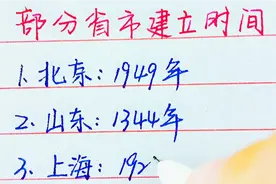 部分省市建立时间
1.北京：1949年
2.山东：1344年
3.上海：192